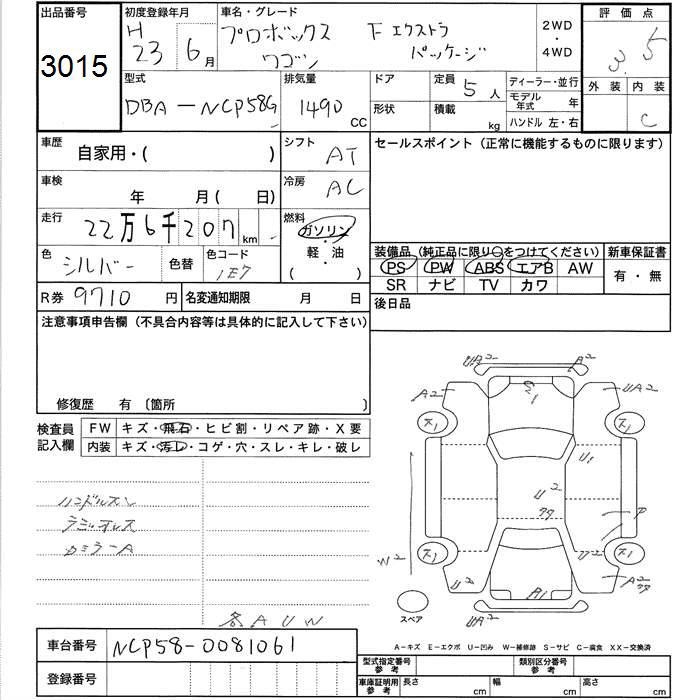 出品番号
3015
初度登録年月
H
23 6月
車名・グレード
プロボックス Fエクストラ
ワゴン パッケージ
2WD
・
4WD
評価点
3.5
外装 内装
C
型式
DBA－NCP58G
排気量
1490
CC
ドア
形状
定員 5 人
積載 kg
ディーラー・並行
モデル年式 年
ハンドル 左・右
車歴
自家用・( )
シフト
AT
セールスポイント (正常に機能するものに限ります)
車検
年 月 ( 日)
冷房
AC
走行
22万6千207 km
燃料
ガソリン
・
軽・油
( )
色
シルバー
色替
色コード
1E7
装備品 (純正品に限り○をつけてください)
PS PW ABS エアB AW
SR ナビ TV カワ
新車保証書
有・無
R券 9710 円
名変通知期限 月 日
後日品
注意事項申告欄 (不具合内容等は具体的に記入して下さい)
修復歴 有 〔箇所 〕
検査員
記入欄
FW キズ・飛石・ヒビ割・リペア跡・X要
内装 キズ・汚レ・コゲ・穴・スレ・キレ・破レ
ハンドルスレ
ラミィオレス
カミラーA
各AUW
UA2 A2
A2 S1 UA2
ス1 ス1
U1
U2
アタ P
W2
ス1 U2 ス1
U2 A1 A2アタ
UA2
スペア
A－キズ E－エクボ U－凹み W－補修跡 S－サビ C－腐食 XX－交換済
車台番号 NCP58-0081061
登録番号
型式指定番号
参考
類別区分番号
参考
車庫証明用
参考
長さ cm
幅 cm
高さ cm